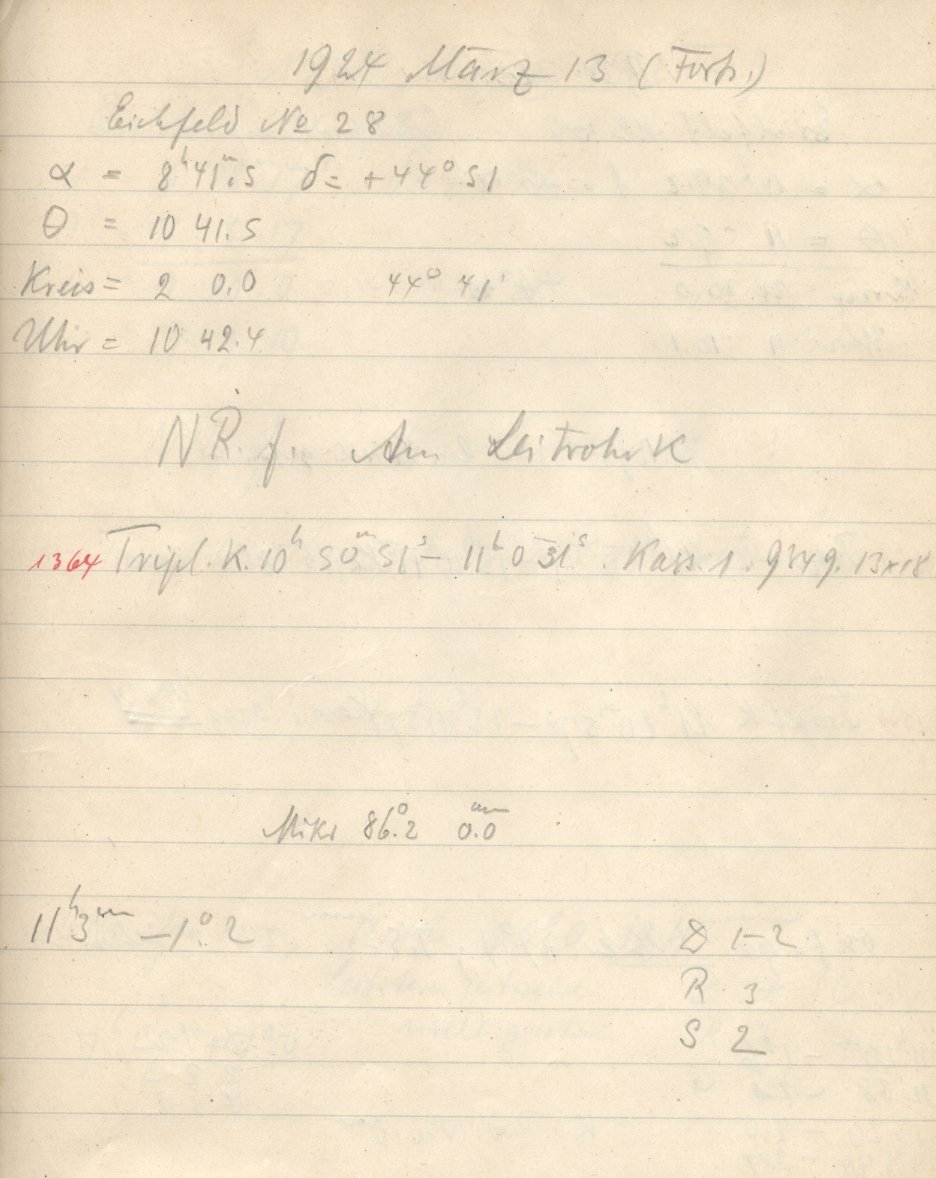 1924 März 13 (Forts.)
Eichfeld No 28
α = 8h 41m.5 δ = +44° 51
θ = 10 41.5
Kreis = 2 0.0 44° 41'
Uhr = 10 42.4
NR. f. Am Leitrohr K
1364 Tripl. K. 10h 50m 51s – 11h 0m 31s. Kass. 1. 9849. 13x18
Mikr 86°.2 0.0mm
11h 3m –1°.2 D 1-2
R 3
S 2